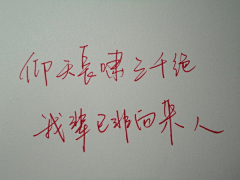 仰天長啸三千绝
我辈已非向来人